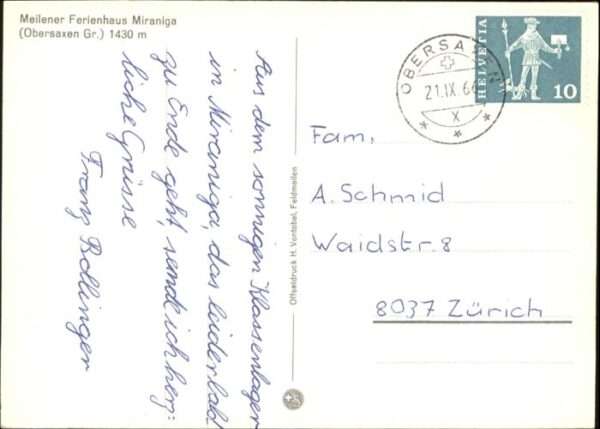 Meilener Ferienhaus Miraniga
(Obersaxen Gr.) 1430 m
Aus dem sonnigen Klassenlager
in Miraniga, das leider bald
zu Ende geht, sende ich herz-
liche Grüsse
Franz Bollinger
Offsetdruck H. Vontobel, Feldmeilen
OBERSAXEN
21.IX.66
X
HELVETIA
10
Fam,
A. Schmid
Waidstr. 8
8037 Zürich